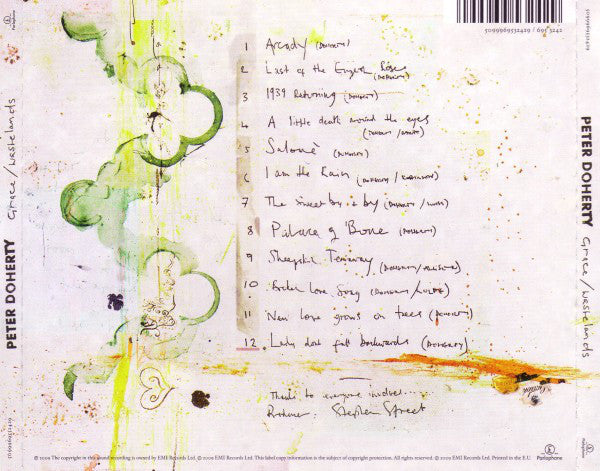 5099969532429 / 695 3242
1 Arcady (DOHERTY)
2 Last of the English Roses
(DOHERTY)
3 1939 Returning (DOHERTY)
4 A little death around the eyes
(DOHERTY /
5 Salomè (DOHERTY)
6 I am the Rain (DOHERTY / ROBINSON)
7 The sweet by & by (DOHERTY /
8 Palace of Bone (DOHERTY)
9 Sheepskin Tearaway (DOHERTY /
10 Broken Love Song (DOHERTY / WOLFE)
11 New Love grows on trees (DOHERTY)
12. Lady dont fall backwards (DOHERTY)
Thanks to everyone involved...
Producer: Stephen Street
PETER DOHERTY Grace/wastelands
PETER DOHERTY Grace/wastelands
5099969532429
5099969532429
Parlophone
℗ 2009 The copyright in this sound recording is owned by EMI Records Ltd. © 2009 EMI Records Ltd. This label copy information is the subject of copyright protection. All rights reserved. © 2009 EMI Records Ltd. Printed in the E.U.